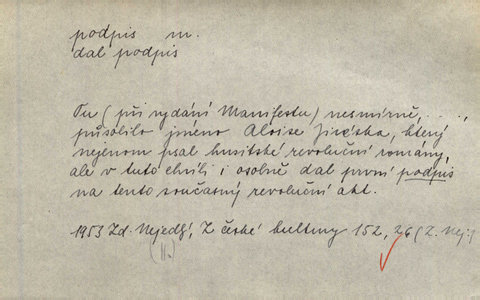 podpis m.
dal podpis
Tu (při vydání Manifestu) nesmírně, . . . .,
působilo jméno Aloise Jiráska, který
nejenom psal husitské revoluční romány,
ale v tuto chvíli i osobně dal první podpis
na tento současný revoluční akt.
1953 Zd. Nejedlý, Z české kultury 152, 26 (Z. Nej.)
(II.)